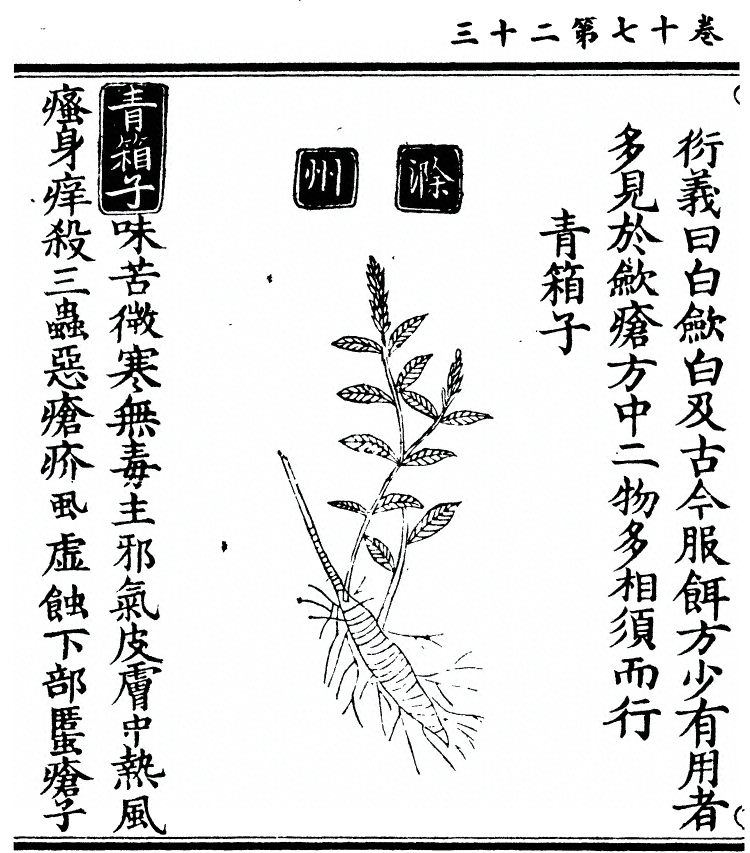 卷十七第二十三
衍義曰白歛白及古今服餌方少有用者
多見於歛瘡方中二物多相須而行
青箱子
滁州
青箱子味苦微寒無毒主邪氣皮膚中熱風
瘙身痒殺三蟲惡瘡疥虱虛蝕下部䘌瘡子